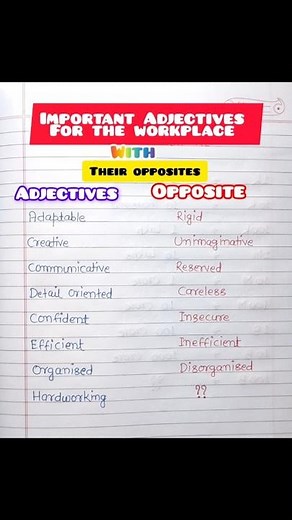 IMPORTANT ADJECTIVES
FOR THE WORKPLACE
WITH
THEIR OPPOSITES
ADJECTIVES OPPOSITE
Adaptable Rigid
Creative Unimaginative
Communicative Reserved
Detail oriented Careless
Confident Insecure
Efficient Inefficient
Organised Disorganised
Hardworking ??